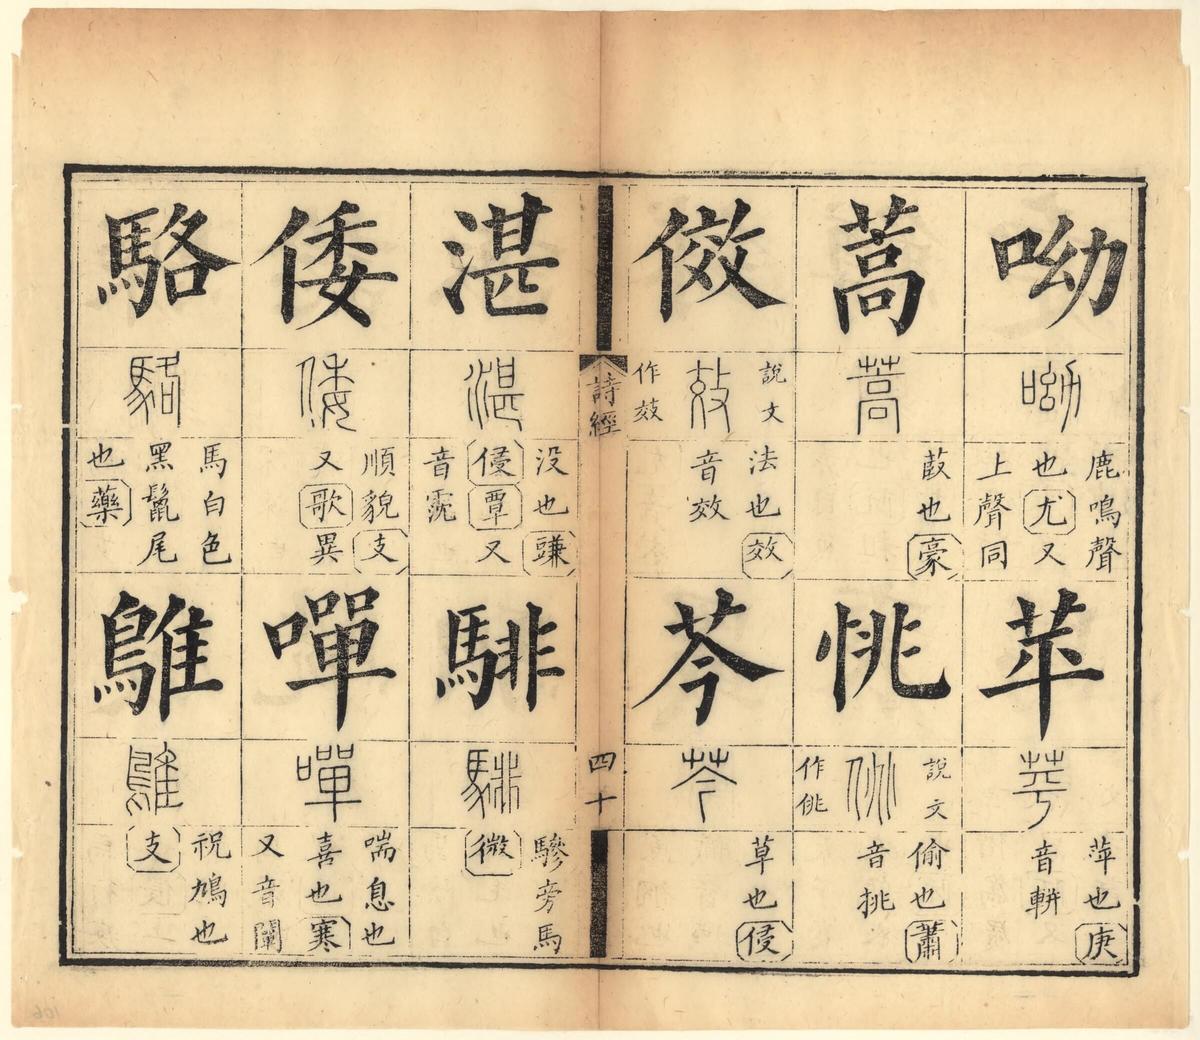 呦
呦
鹿鳴聲
也尤又
上聲同
苹
苹
萍也庚
音輧
蒿
蒿
菣也豪
恌
說文
佻
作佻
偷也蕭
音挑
傚
說文
效
作效
法也效
音效
芩
芩
草也侵
詩經
四十
湛
湛
没也豏
侵覃又
音霃
騑
騑
驂旁馬
微
倭
倭
順貌支
又歌異
嘽
嘽
喘息也
喜也寒
又音闡
駱
駱
馬白色
黑鬣尾
也藥
鵻
鵻
祝鳩也
支